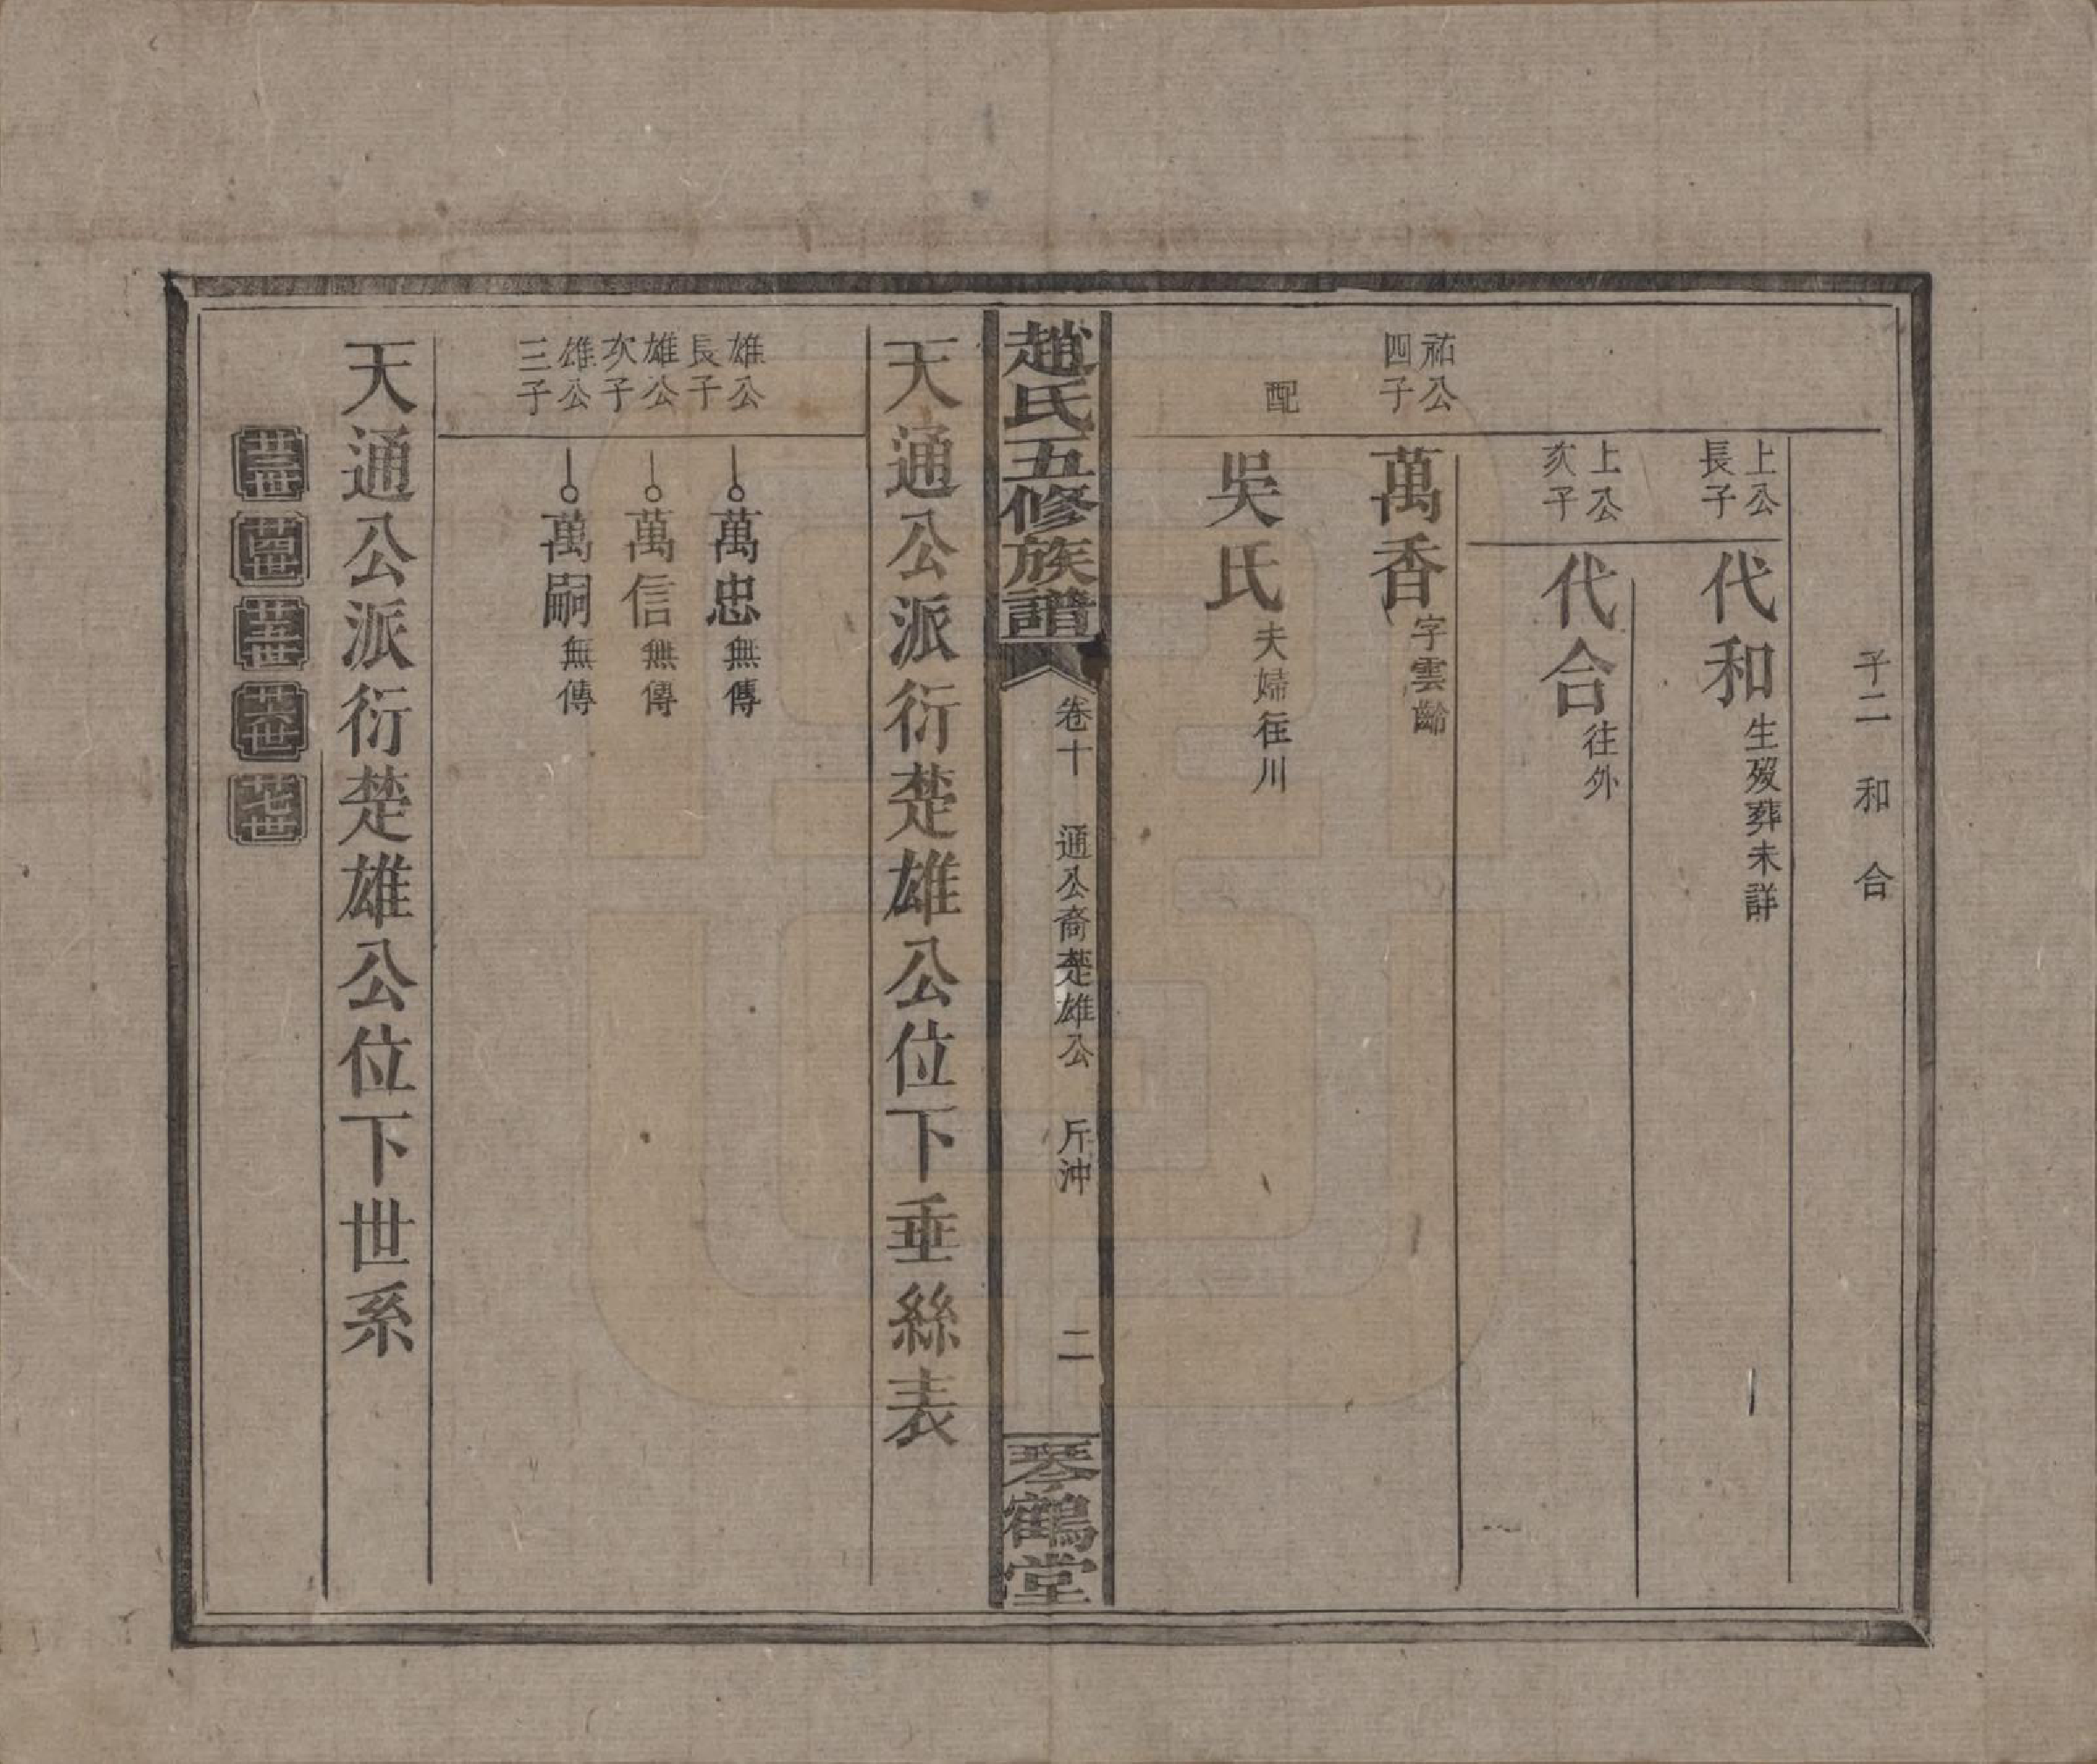 子二　和　合
上公長子　代和　生歿葬未詳
上公次子　代合　往外
祐公四子　萬香　字雲齡
配　吳氏　夫婦往川
趙氏五修族譜　卷十　通公裔楚雄公　斤沖　二　琴鶴堂
天通公派衍楚雄公位下垂絲表
雄公長子　萬忠　無傳
雄公次子　萬信　無傳
雄公三子　萬嗣　無傳
天通公派衍楚雄公位下世系
廿三世　廿四世　廿五世　廿六世　廿七世